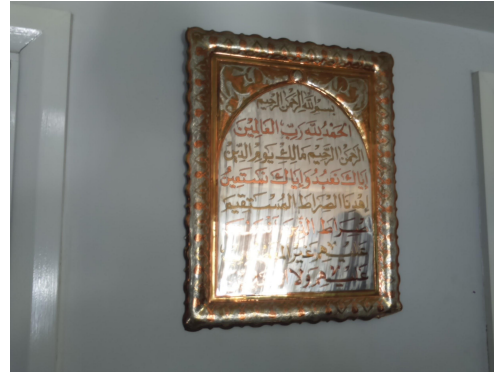 بسم الله الرحمن الرحيم
الحمد لله رب العالمين
الرحمن الرحيم مالك يوم الدين
إياك نعبد وإياك نستعين
اهدنا الصراط المستقيم
صراط
غير
عليهم ولا